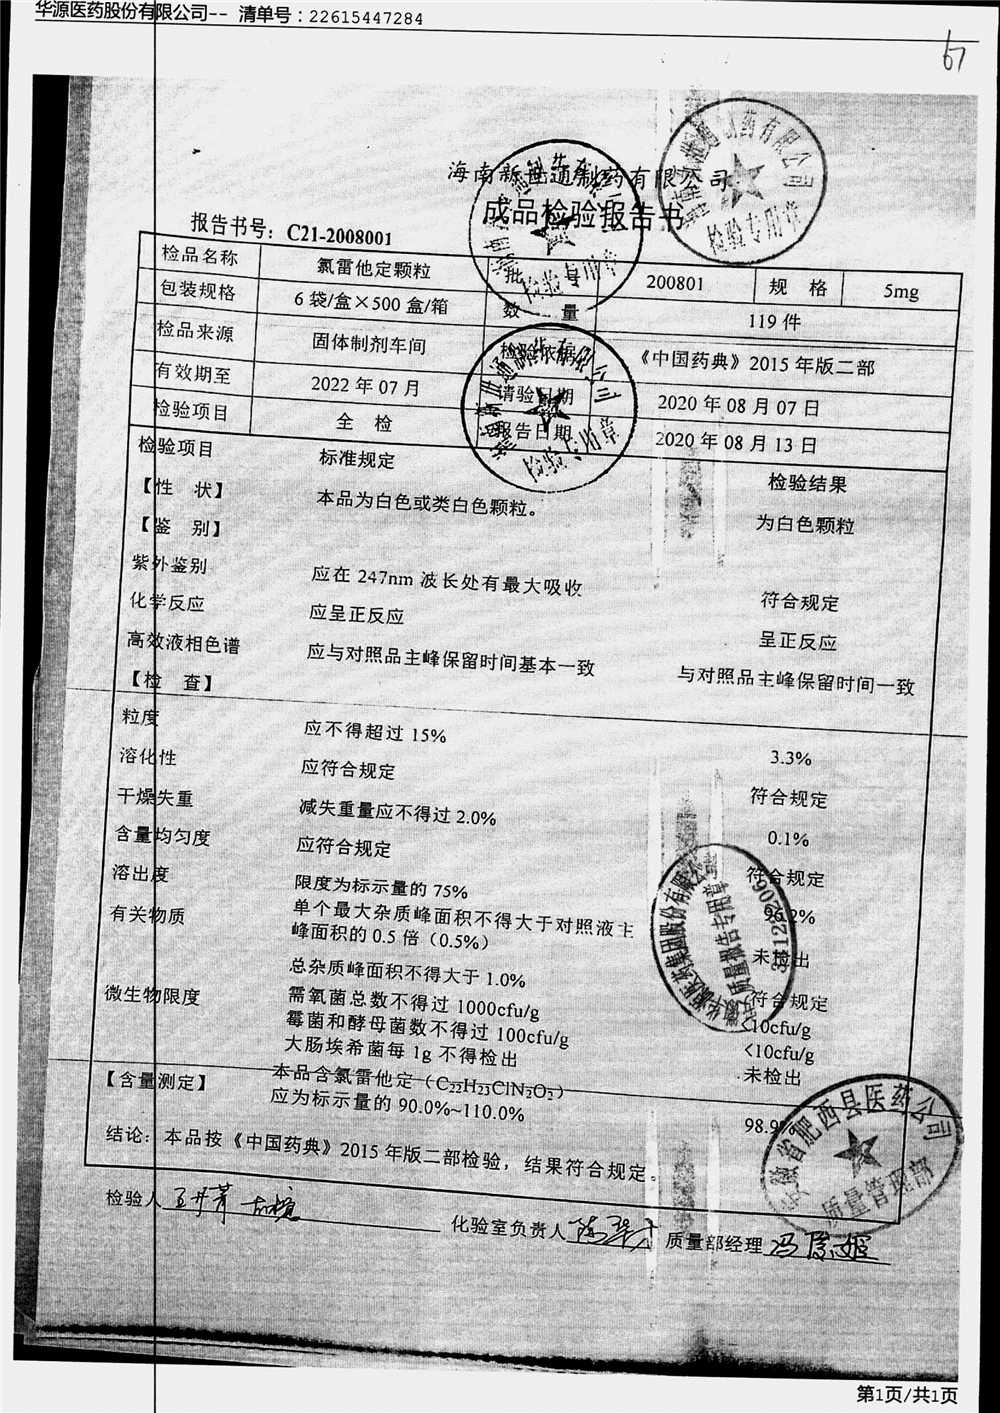 华源医药股份有限公司-- 清单号：22615447284
67
海南新世通制药有限公司
成品检验报告书
报告书号：C21-2008001
检品名称 氯雷他定颗粒 批 200801 规 格 5mg
包装规格 6 袋/盒×500 盒/箱 数 量 119 件
检品来源 固体制剂车间 检验依据 《中国药典》2015 年版二部
有效期至 2022 年 07 月 请验日期 2020 年 08 月 07 日
检验项目 全 检 报告日期 2020 年 08 月 13 日
检验项目 标准规定 检验结果
【性 状】 本品为白色或类白色颗粒。 为白色颗粒
【鉴 别】
紫外鉴别 应在 247nm 波长处有最大吸收 符合规定
化学反应 应呈正反应 呈正反应
高效液相色谱 应与对照品主峰保留时间基本一致 与对照品主峰保留时间一致
【检 查】
粒度 应不得超过 15% 3.3%
溶化性 应符合规定 符合规定
干燥失重 减失重量应不得过 2.0% 0.1%
含量均匀度 应符合规定 符合规定
溶出度 限度为标示量的 75% 96.2%
有关物质 单个最大杂质峰面积不得大于对照液主
峰面积的 0.5 倍（0.5%） 未检出
总杂质峰面积不得大于 1.0% 符合规定
微生物限度 需氧菌总数不得过 1000cfu/g <10cfu/g
霉菌和酵母菌数不得过 100cfu/g <10cfu/g
大肠埃希菌每 1g 不得检出 未检出
【含量测定】 本品含氯雷他定（C₂₂H₂₃ClN₂O₂）
应为标示量的 90.0%~110.0% 98.9%
结论：本品按《中国药典》2015 年版二部检验，结果符合规定。
检验人 化验室负责人 质量部经理
检验专用章
检验专用章
检验专用章
安徽省肥西县医药公司
质量管理部
第1页/共1页